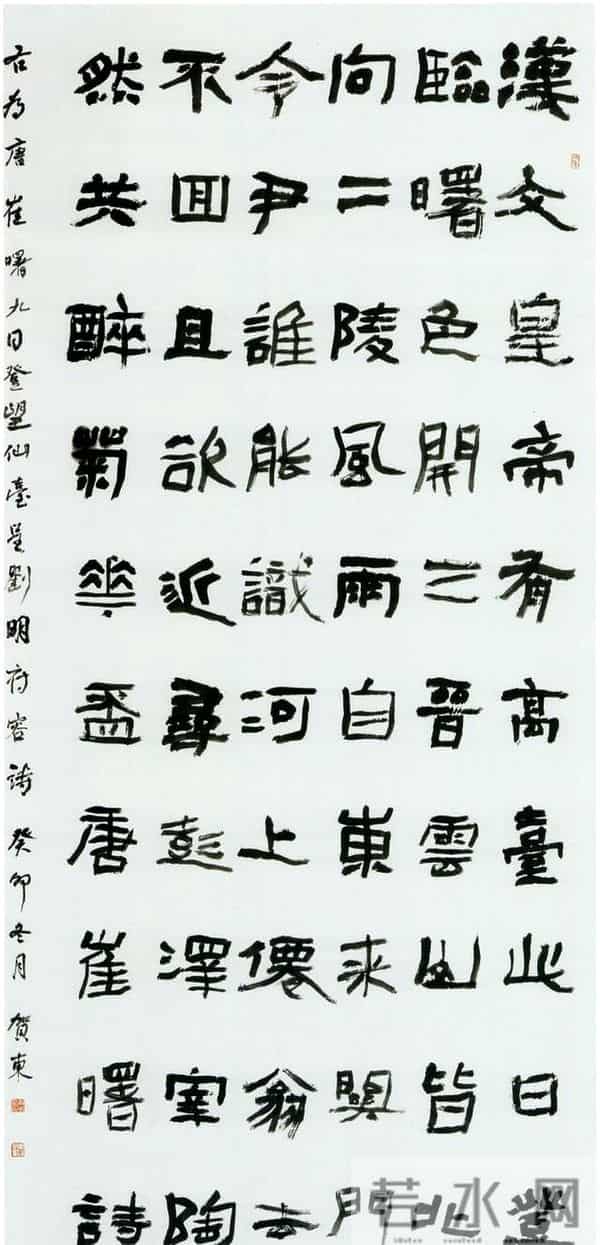 漢文皇帝有高臺此日登
臨曙色開三晉雲山皆北
向二陵風雨自東來關門
令尹誰能識河上僊翁去
不回且欲近尋彭澤宰陶
然共醉菊華盃唐崔曙詩
右為唐崔曙九日登望仙臺呈劉明府容詩癸卯冬月賀東
若水网